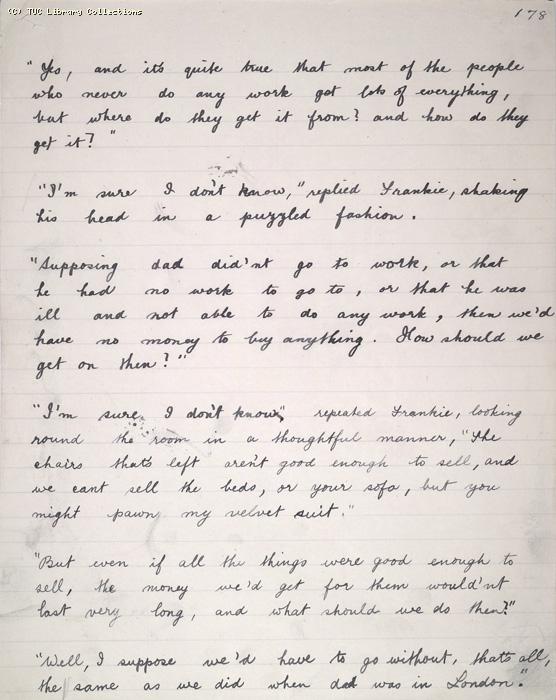 (C) TUC Library Collections
178
"Yes, and it's quite true that most of the people
who never do any work get lots of everything,
but where do they get it from? and how do they
get it? "
"I'm sure I don't know," replied Frankie, shaking
his head in a puzzled fashion.
"Supposing dad did'nt go to work, or that
he had no work to go to, or that he was
ill and not able to do any work, then we'd
have no money to buy anything. How should we
get on then?"
"I'm sure I don't know," repeated Frankie, looking
round the room in a thoughtful manner, "The
chairs that's left aren't good enough to sell, and
we cant sell the beds, or your sofa, but you
might pawn my velvet suit."
"But even if all the things were good enough to
sell, the money we'd get for them would'nt
last very long, and what should we do then?"
"Well, I suppose we'd have to go without, that's all,
the same as we did when dad was in London."